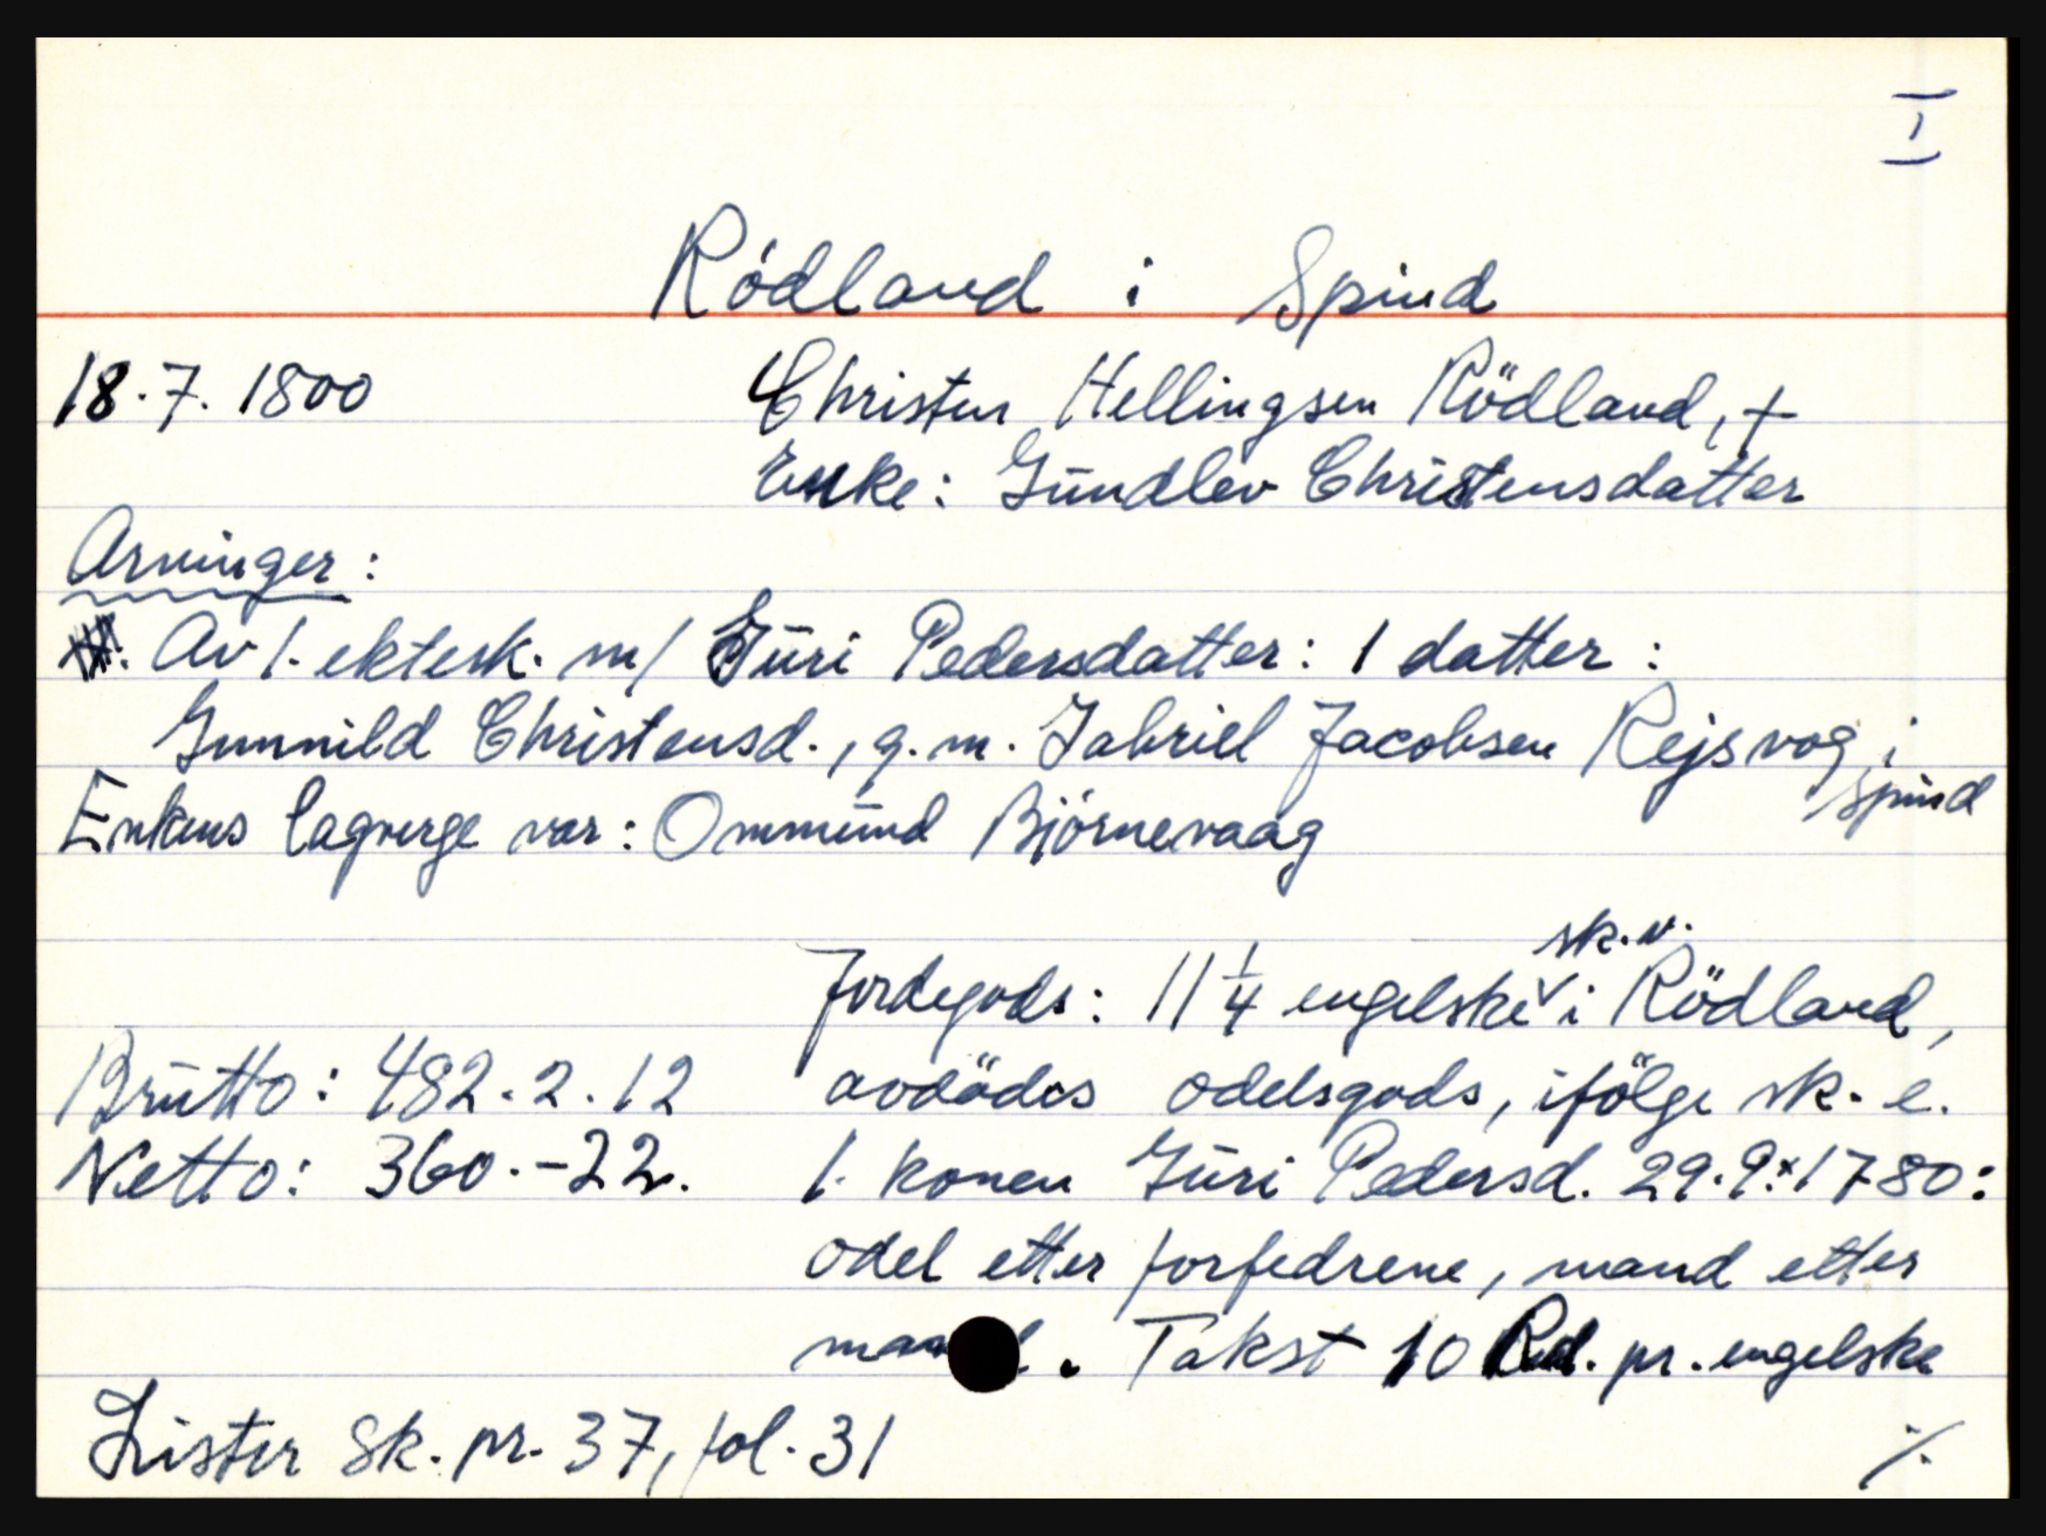 I
Rödland i Spind
18.7. 1800 Christen Hellingsen Rödland, +
Enke: Gundlev Christensdatter
Arvinger:
Av 1. ektesk. m/ Guri Pedersdatter: 1 datter:
Gunnild Christensd., g.m. Gabriel Jacobsen Rejsvog i
Spind
Enkens lagverge var: Ommund Björnevaag
sk.v.
Jordegods: 11 1/4 engelske v i Rödland,
Brutto: 482.2.12 avdödes odelsgods, ifölge sk. e.
Netto: 360.-22. 1. konen Guri Pedersd. 29.9.1780:
odel etter forfedrene, mand etter
mand. Takst 10 Rd. pr. engelske
Lister Sk. pr. 37, fol. 31 ./.